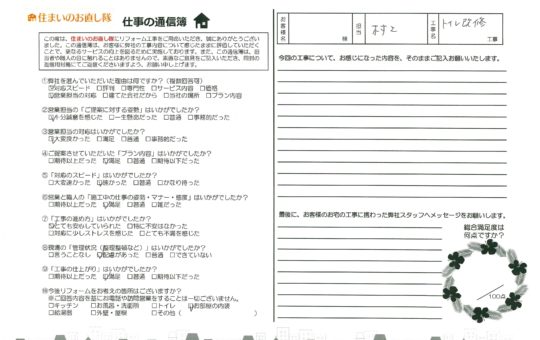 住まいのお直し隊
仕事の通信簿
この度は、住まいのお直し隊にリフォーム工事をご用命いただき、誠にありがとうござい
ました。この通信簿は、お客様に弊社の工事内容について感じたままに評価していただく
ことで、更なるサービスの向上を図るために実施しております。また、この通信簿は、担
当者や職人の目に触れることはありませんので、率直なご意見をご記入いただき、同封の
返信用封筒にてご返送くださいますよう、お願い申し上げます。
①弊社を選んでいただいた理由は何ですか?(複数回答可)
☑対応スピード □評判 □専門性 □サービス内容 □価格
☑営業担当の対応 □建てた会社だから □当社の場所 □プラン内容
②営業担当の「ご提案に対する姿勢」はいかがでしたか?
☑十分誠意を感じた □一生懸命だった □普通 □事務的だった
③営業担当の対応はいかがでしたか?
☑大変良かった □満足 □普通 □事務的だった
④ご提案させていただいた「プラン内容」はいかがでしたか?
□期待以上だった ☑満足 □普通 □期待以下だった
⑤「対応のスピード」はいかがでしたか?
□大変速かった ☑速かった □普通 □かなり待った
⑥営業と職人の「施工中の仕事の姿勢・マナー・態度」はいかがでしたか?
□期待以上だった ☑満足 □普通 □雑だった
⑦「工事の進め方」はいかがでしたか?
☑とても安心していられた □特に不安はなかった
□対応に少しストレスを感じた □とても不満を感じた
⑧現場の「管理状況(整理整頓など)」はいかがでしたか?
□言うことなし ☑配慮があった □普通 □できていない
⑨「工事の仕上がり」はいかがでしたか?
□期待以上だった ☑満足 □普通 □期待以下だった
⑩今後リフォームをお考えの箇所はございますか?
※ご回答内容を基にお電話や訪問営業をすることは一切ございません。
□キッチン □お風呂・洗面所 □トイレ ☑お部屋の内装
□給湯器 □外壁・屋根 □その他( )
お客様名
様
担当
村上
工事名
トイレ改修
工事
今回の工事について、お感じになった内容を、そのままご記入お願いいたします。
最後に、お客様のお宅の工事に携わった弊社スタッフへメッセージをお願いします。
総合満足度は
何点ですか?
/100点